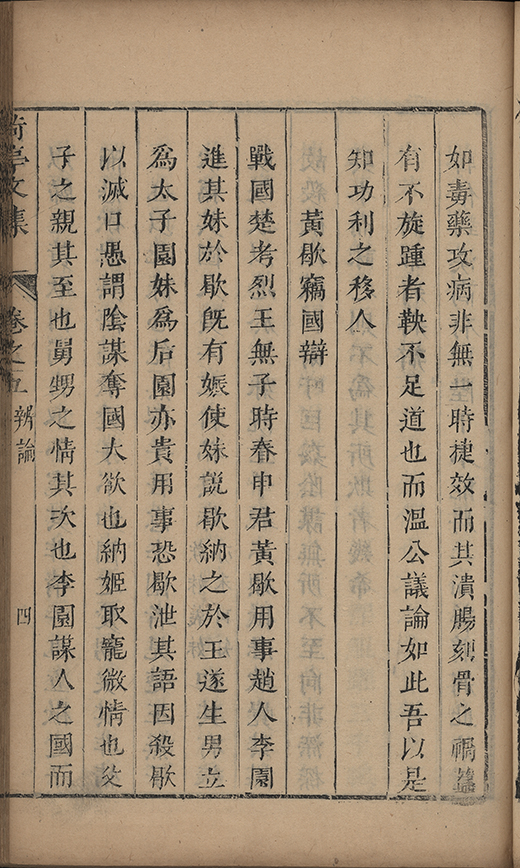 如毒藥攻病非無一時捷效而其潰腸刻骨之禍蓋
有不旋踵者鞅不足道也而溫公議論如此吾以是
知功利之移人
黃歇竊國辯
戰國楚考烈王無子時春申君黃歇用事趙人李園
進其妹於歇既有娠使妹說歇納之於王遂生男立
爲太子園妹爲后園亦貴用事恐歇泄其語因殺歇
以滅口愚謂陰謀奪國大欲也納姬取寵微情也父
子之親其至也舅甥之情其次也李園謀人之國而
亭文集
卷之五 辨論
四